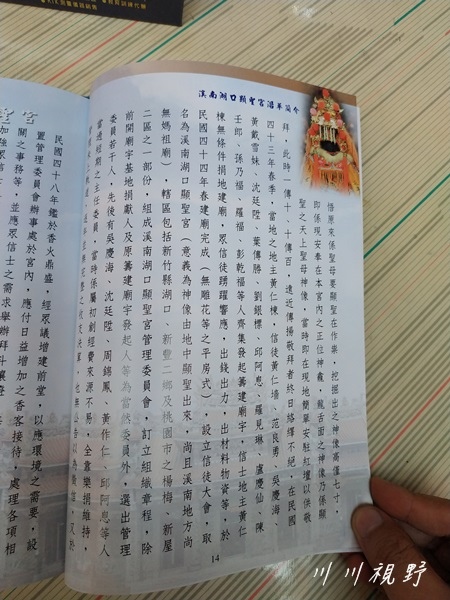 溪南湖口顯聖宮沿革簡介
悟原來係聖母要顯聖在作祟，挖掘出之神像高僅七寸，
即係現安奉在本宮內之正位神龕，龍舌面之神像乃係顯
聖之天上聖母神像，當時即在現地簡單安駐紅壇以供敬
拜，此時一傳十，十傳百，遠近傳揚敬拜者終日絡繹不絕，在民國
四十三年春季，當地之地主黃仁棟，信徒黃仁墻、范良勇、吳慶海、
黃戴雪妹、沈廷陞、葉傳勝、劉銀標、邱阿恩、羅見琳、盧慶仙、陳
壬郎、孫乃福、羅福、彭乾福等人齊集發起籌建廟宇，信士地主黃仁
棟無條件捐地建廟，眾信徒踴躍響應，出錢出力，出材料物資等，於
民國四十四年春建廟完成（無雕花等之平房式）設立信徒大會，取
名為湖口顯聖宮（意義為神像由地中顯聖出來，尚且溪南地方尚
無媽祖廟），轄區包括新竹縣湖口、新豐二鄉及桃園市之楊梅、新屋
二區之一部份，組成溪南湖口顯聖宮管理委員會，訂立組織章程，除
前開廟宇基地捐獻人及原籌建廟宇發起人等為當然委員外，選出管理
委員若干人，先後有吳慶海、沈廷陞、周錦鳳、黃作仁、邱阿恩等人
當過短期之主任委員，當時係屬初創經費來源不易，全靠樂捐維持，
14
聖宮
民國四十八年鑑於香火鼎盛，經眾議增建前堂，以應環境之需要，設
置管理委員會辦事處於宮內，應付日益增加之香客接待，處理各項相
關之事務等，並應眾信士之需求舉辦拜斗禳
川川視野